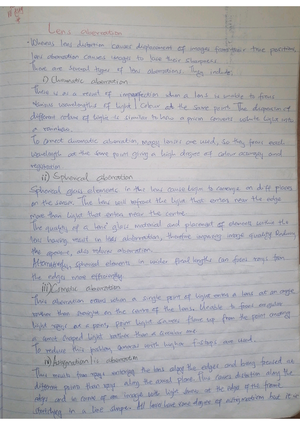 Lens aberration
Whereas lens distortion causes displacement of images from their true position,
lens aberration causes images to lose their sharpness.
There are several types of lens aberrations. They include:
i) Chromatic aberration
This is as a result of imperfection when a lens is unable to focus
various wavelengths of light / colour at the same point. The dispersion of
different colors of light is similar to how a prism converts white light into
a rainbow.
To correct chromatic aberration lenses are used. So they focus each
wavelength at the same point giving a high degree of color accuracy and
registration.
ii) Spherical aberration
Spherical glass elements in the lens cause light to converge on diff places
on the sensor. The lens will refract the light that enters near the edge
more than light that enters near the centre.
The quality of a lens' glass material and placement of elements within the
lens having result in less aberration, therefore improving image quality. Reducing
the aperture, also reduces aberration.
Alternatively, special elements in wider fixed lengths can focus rays from
the edges more efficiently.
iii) Comatic aberration
This aberration occurs when a single point of light enters a lens at an angle
rather than straight on the centre of the lens. Unable to focus angular
light rays on a point, these light waves flare up from the point creating
a comet-shaped light rather than a circular one.
To reduce this problem, lenses with higher f-stops are used.
iv) Astigmatic aberration
This results from rays entering the lens along the edges and being focused on
different points than rays along the axial plane. This causes distortion along the
edges and in corner of an image with light along at the edge of the frame
stretching in a line shape. All lens have some degree of astigmatism but it is